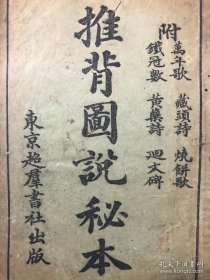 附
萬年歌 藏頭詩 燒餅歌
鐵冠數 黃蘗詩 迴文碑
推背圖說秘本
東京趂羣書社出版